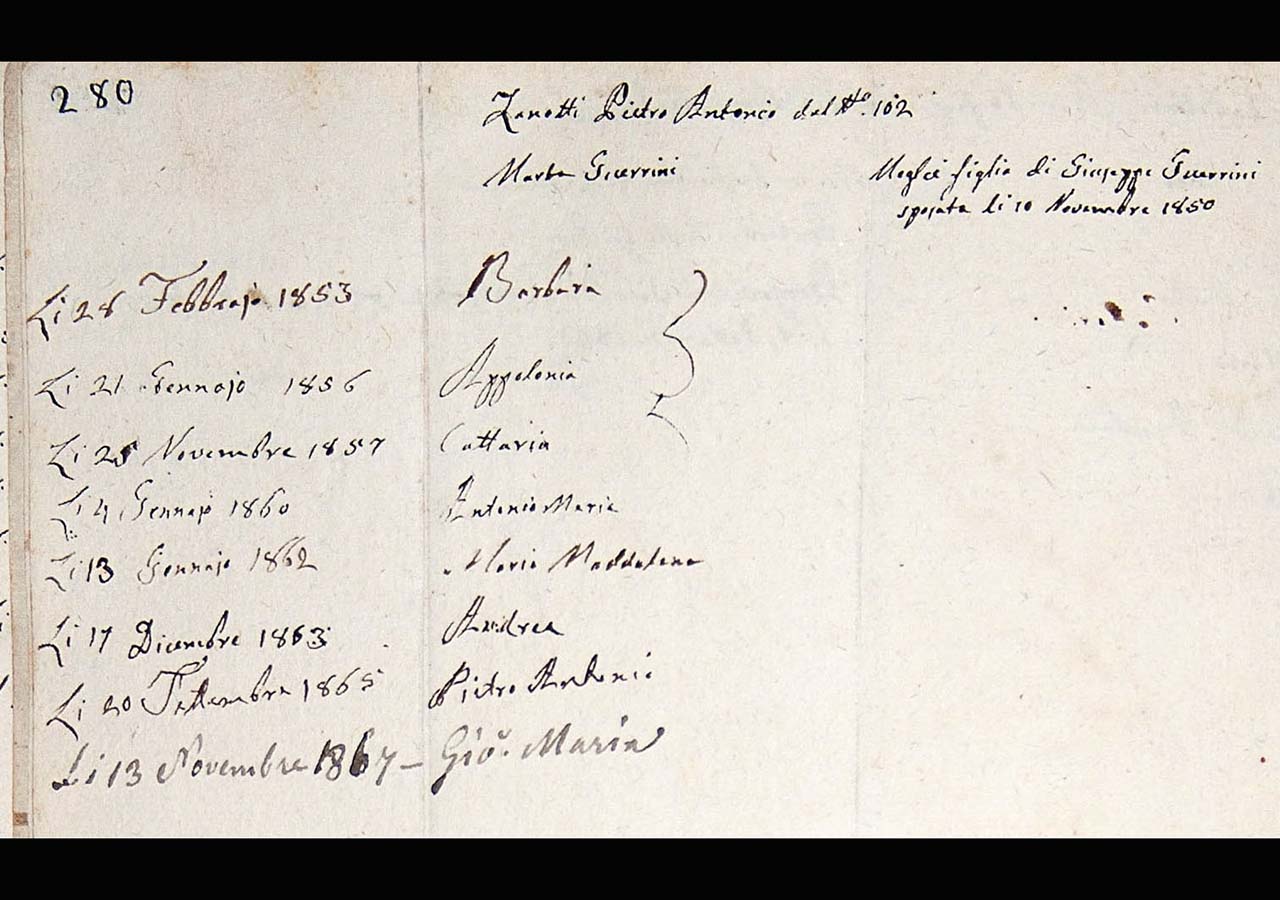 280
Zanotti Pietro Antonio dal No. 102
Marta Guerrini
Moglie figlia di Giuseppe Guerrini
sposata li 10 Novembre 1850
Li 28 Febbrajo 1853 Barbara
Li 21 Gennajo 1856 Appolonia
Li 25 Novembre 1857 Cattaria
Li 4 Gennajo 1860 Antonio Maria
Li 13 Gennajo 1862 Maria Maddalena
Li 17 Dicembre 1863 Andrea
Li 20 Settembre 1865 Pietro Antonio
Li 13 Novembre 1867 – Gio. Maria